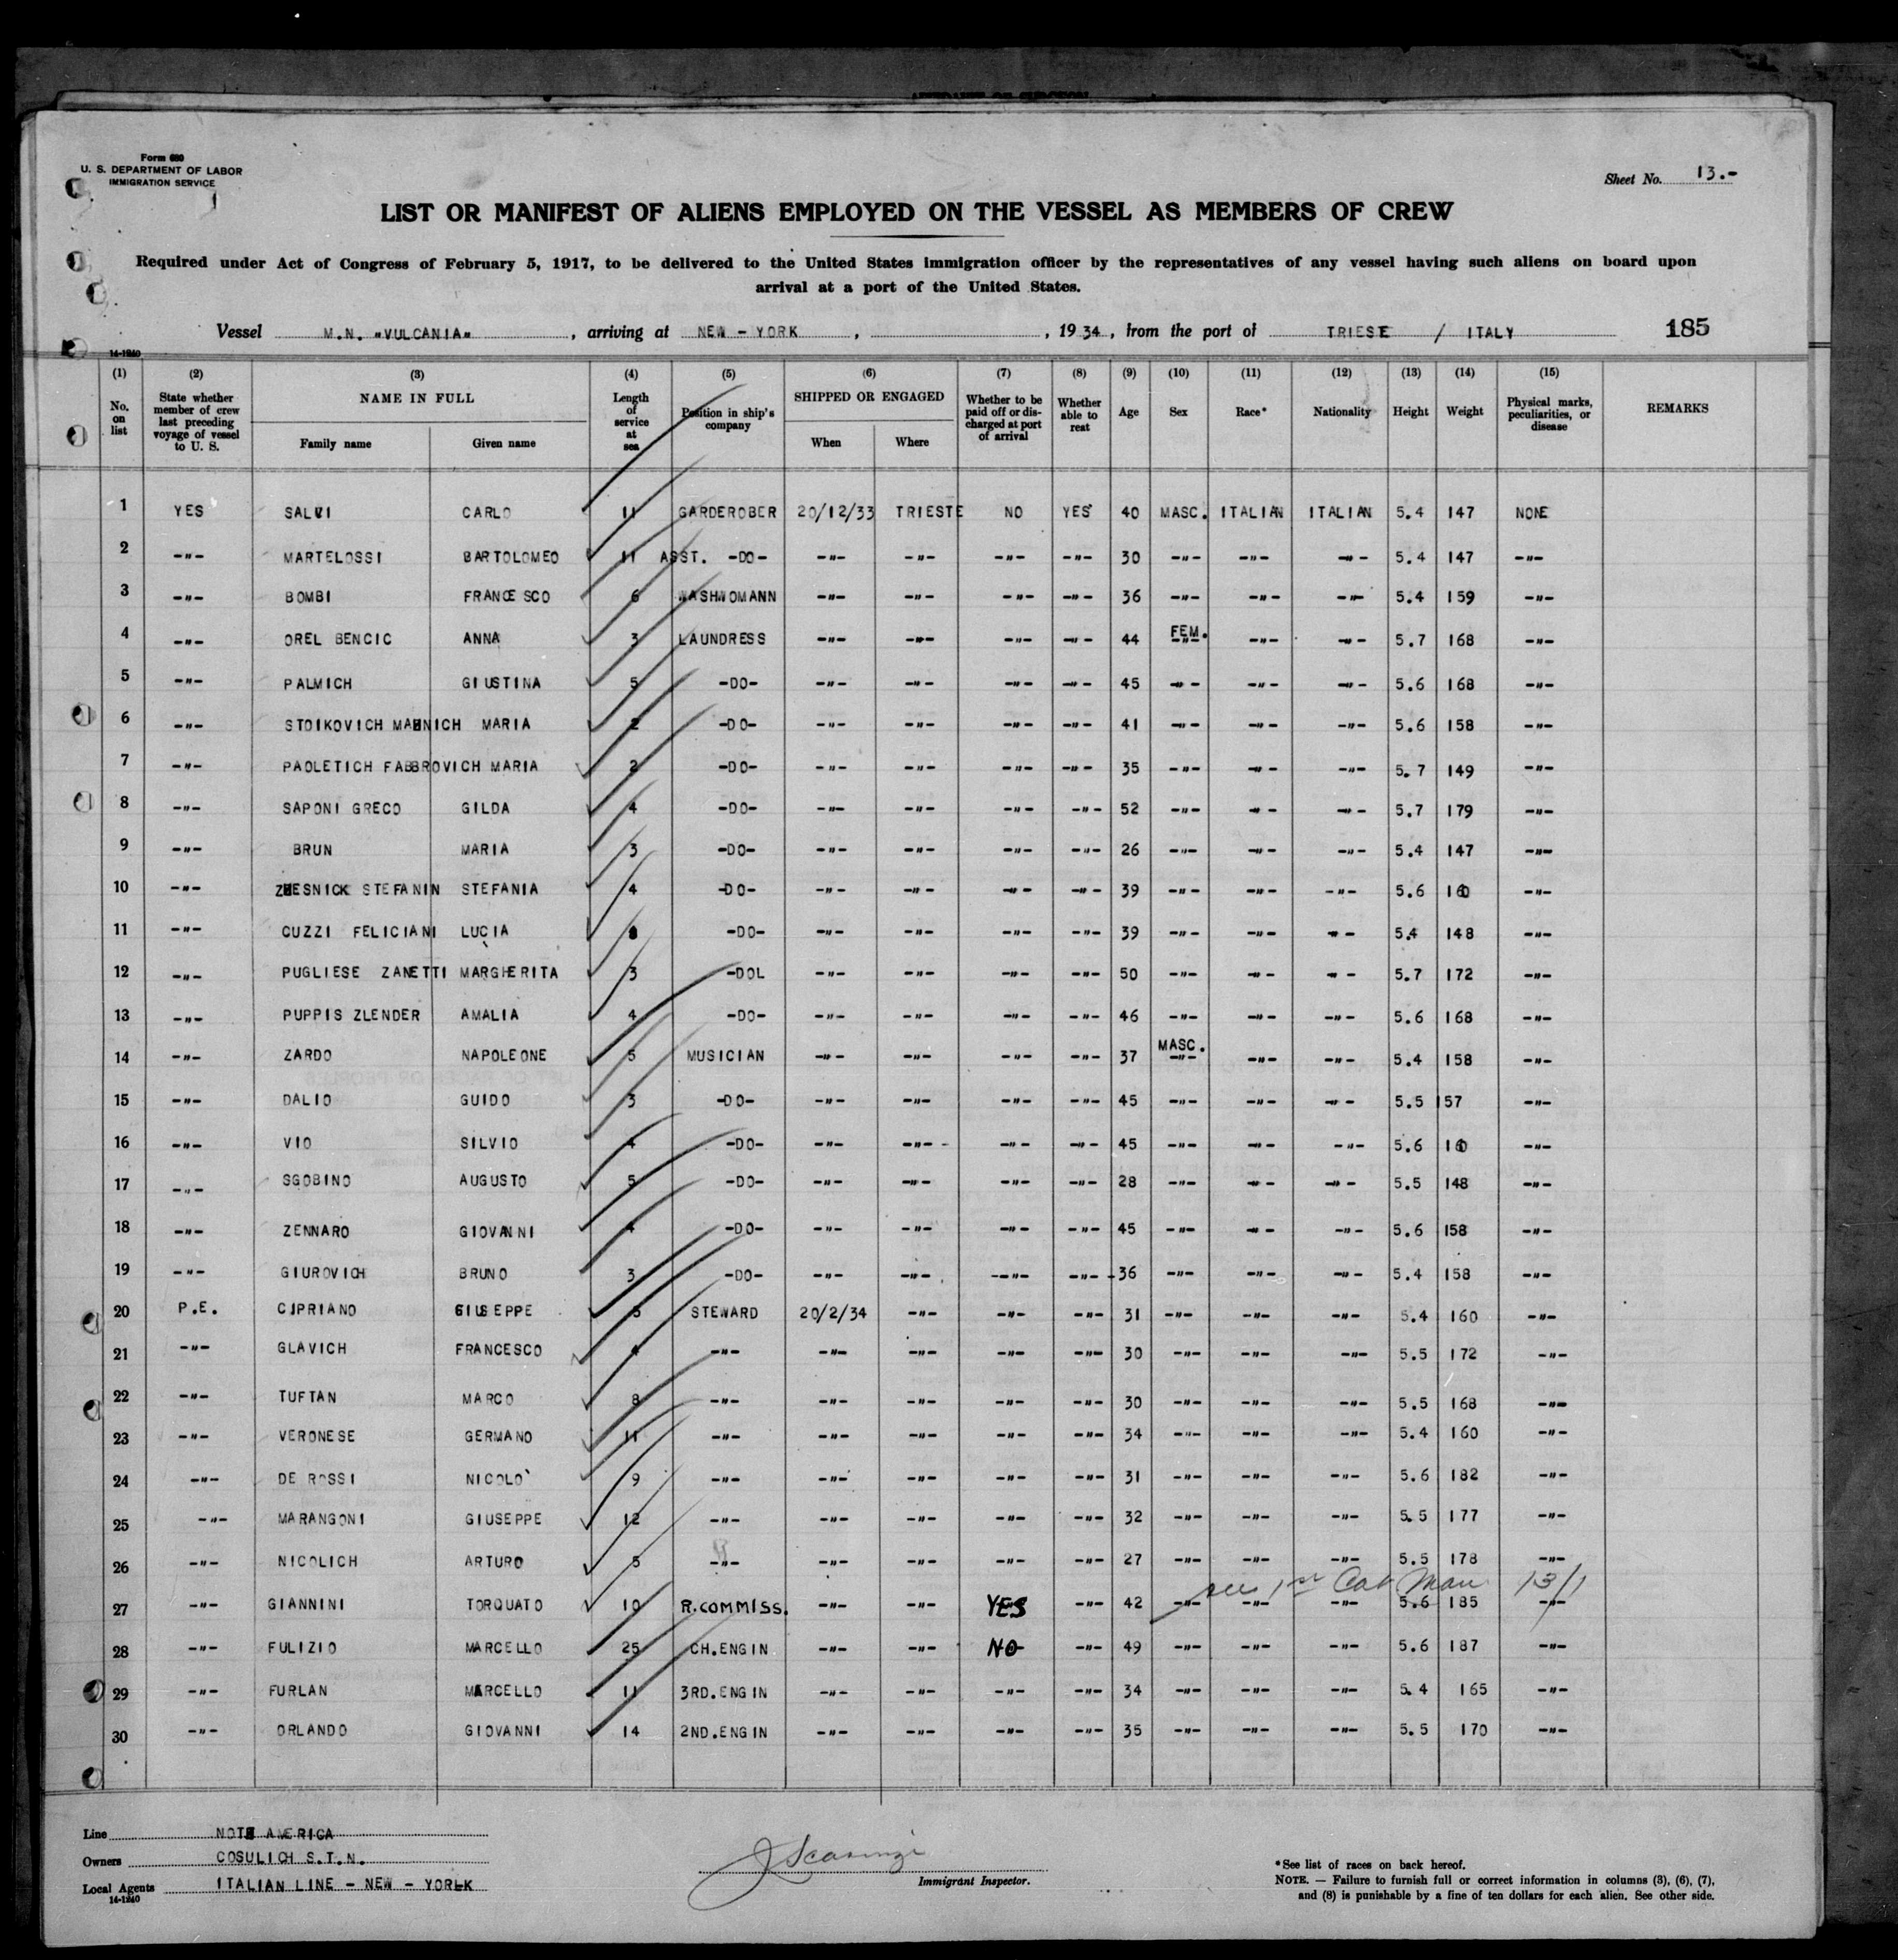 Form 680
U. S. DEPARTMENT OF LABOR
IMMIGRATION SERVICE
Sheet No. 13.-
LIST OR MANIFEST OF ALIENS EMPLOYED ON THE VESSEL AS MEMBERS OF CREW
Required under Act of Congress of February 5, 1917, to be delivered to the United States immigration officer by the representatives of any vessel having such aliens on board upon
arrival at a port of the United States.
Vessel M.N. "VULCANIA", arriving at NEW - YORK, , 1934, from the port of TRIESE / ITALY 185
14-1240
(1) (2) (3) (4) (5) (6) (7) (8) (9) (10) (11) (12) (13) (14) (15)
No. on list State whether member of crew last preceding voyage of vessel to U. S. NAME IN FULL Family name Given name Length of service at sea Position in ship's company SHIPPED OR ENGAGED When Where Whether to be paid off or discharged at port of arrival Whether able to reat Age Sex Race* Nationality Height Weight Physical marks, peculiarities, or disease REMARKS
1 YES SALVI CARLO 11 GARDEROBER 20/12/33 TRIESTE NO YES 40 MASC. ITALIAN ITALIAN 5.4 147 NONE
2 -"- MARTELOSSI BARTOLOMEO 11 ASST. -DO- -"- -"- -"- -"- 30 -"- -"- -"- 5.4 147 -"-
3 -"- BOMBI FRANCESCO 6 WASHWOMANN -"- -"- -"- -"- 36 -"- -"- -"- 5.4 159 -"-
4 -"- OREL BENCIC ANNA 3 LAUNDRESS -"- -"- -"- -"- 44 FEM. -"- -"- 5.7 168 -"-
5 -"- PALMICH GIUSTINA 5 -DO- -"- -"- -"- -"- 45 -"- -"- -"- 5.6 168 -"-
6 -"- STOIKOVICH MAUNICH MARIA 2 -DO- -"- -"- -"- -"- 41 -"- -"- -"- 5.6 158 -"-
7 -"- PAOLETICH FABBROVICH MARIA 2 -DO- -"- -"- -"- -"- 35 -"- -"- -"- 5.7 149 -"-
8 -"- SAPONI GRECO GILDA 4 -DO- -"- -"- -"- -"- 52 -"- -"- -"- 5.7 179 -"-
9 -"- BRUN MARIA 3 -DO- -"- -"- -"- -"- 26 -"- -"- -"- 5.4 147 -"-
10 -"- STEFANIN STEFANIA 4 -DO- -"- -"- -"- -"- 39 -"- -"- -"- 5.6 160 -"-
11 -"- CUZZI FELICIANI LUCIA -DO- -"- -"- -"- -"- 39 -"- -"- -"- 5.4 148 -"-
12 -"- PUGLIESE ZANETTI MARGHERITA 3 -DOL -"- -"- -"- -"- 50 -"- -"- -"- 5.7 172 -"-
13 -"- PUPPIS ZLENDER AMALIA 4 -DO- -"- -"- -"- -"- 46 -"- -"- -"- 5.6 168 -"-
14 -"- ZARDO NAPOLEONE 5 MUSICIAN -"- -"- -"- -"- 37 MASC. -"- -"- -"- 5.4 158 -"-
15 -"- DALIO GUIDO 3 -DO- -"- -"- -"- -"- 45 -"- -"- -"- 5.5 157 -"-
16 -"- VIO SILVIO 4 -DO- -"- -"- -"- -"- 45 -"- -"- -"- 5.6 160 -"-
17 -"- SGOBINO AUGUSTO 5 -DO- -"- -"- -"- -"- 28 -"- -"- -"- 5.5 148 -"-
18 -"- ZENNARO GIOVANNI 4 -DO- -"- -"- -"- -"- 45 -"- -"- -"- 5.6 158 -"-
19 -"- GIUROVICH BRUNO 3 -DO- -"- -"- -"- -"- 36 -"- -"- -"- 5.4 158 -"-
20 P.E. CIPRIANO GIUSEPPE 5 STEWARD 20/2/34 -"- -"- -"- 31 -"- -"- -"- 5.4 160 -"-
21 -"- GLAVICH FRANCESCO 4 -"- -"- -"- -"- -"- 30 -"- -"- -"- 5.5 172 -"-
22 -"- TUFTAN MARCO 8 -"- -"- -"- -"- -"- 30 -"- -"- -"- 5.5 168 -"-
23 -"- VERONESE GERMANO 11 -"- -"- -"- -"- -"- 34 -"- -"- -"- 5.4 160 -"-
24 -"- DE ROSSI NICOLO` 9 -"- -"- -"- -"- -"- 31 -"- -"- -"- 5.6 182 -"-
25 -"- MARANGONI GIUSEPPE 12 -"- -"- -"- -"- -"- 32 -"- -"- -"- 5.5 177 -"-
26 -"- NICOLICH ARTURO 5 -"- -"- -"- -"- -"- 27 -"- -"- -"- 5.5 178 -"-
see 1st Cab Man 13/1
27 -"- GIANNINI TORQUATO 10 R.COMMISS. -"- -"- YES -"- 42 -"- -"- -"- 5.6 185 -"-
28 -"- FULIZIO MARCELLO 25 CH.ENGIN -"- -"- NO -"- 49 -"- -"- -"- 5.6 187 -"-
29 -"- FURLAN MARCELLO 11 3RD.ENGIN -"- -"- -"- -"- 34 -"- -"- -"- 5.4 165 -"-
30 -"- ORLANDO GIOVANNI 14 2ND.ENGIN -"- -"- -"- -"- 35 -"- -"- -"- 5.5 170 -"-
Line NOTH AMERICA
Owners COSULICH S.T.N.
Local Agents ITALIAN LINE - NEW - YORLK
14-1240
Immigrant Inspector.
*See list of races on back hereof.
NOTE. — Failure to furnish full or correct information in columns (3), (6), (7),
and (8) is punishable by a fine of ten dollars for each alien. See other side.